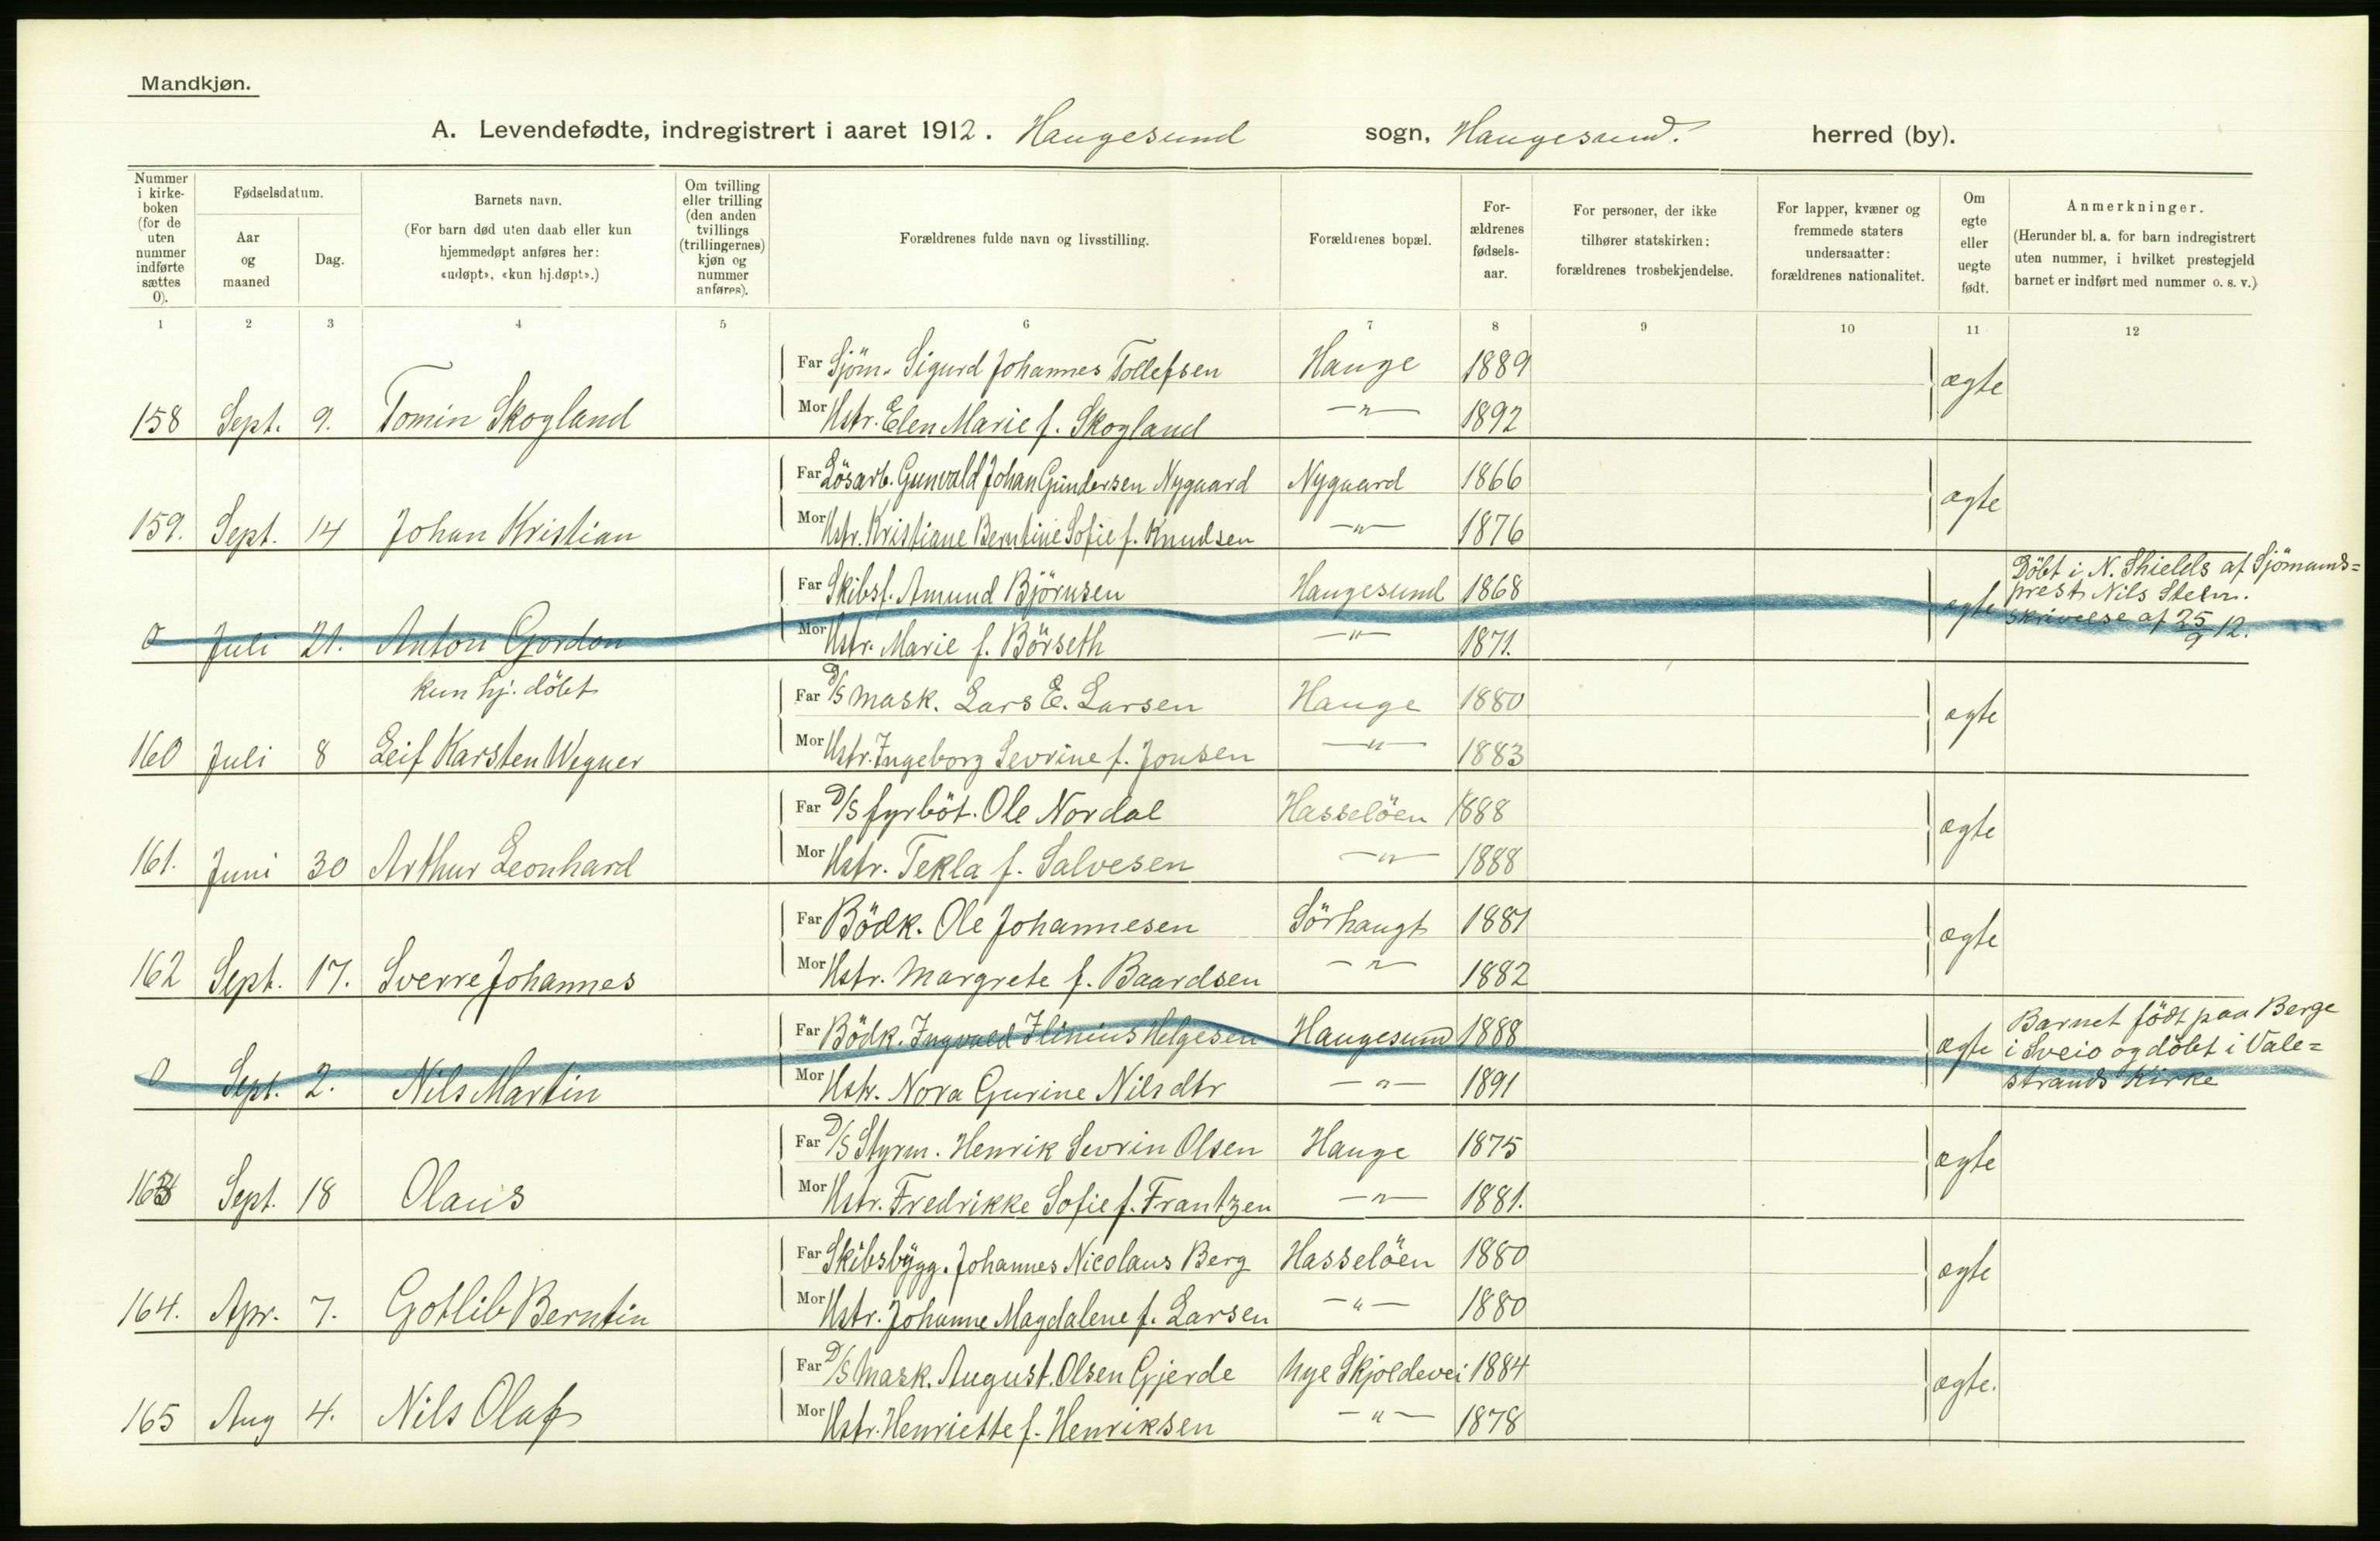 Mandkjøn.
A. Levendefødte, indregistrert i aaret 1912. Haugesund sogn, Haugesund. herred (by).
Nummer i kirke-boken (for de uten nummer indførte sættes 0).
Fødselsdatum.
Aar og maaned
Dag.
Barnets navn.
(For barn død uten daab eller kun hjemmedøpt anføres her: «udøpt», «kun hj.døpt».)
Om tvilling eller trilling (den anden tvillings (trillingernes) kjøn og nummer anføres).
Forældrenes fulde navn og livsstilling.
Forældrenes bopæl.
For-ældrenes fødsels-aar.
For personer, der ikke tilhører statskirken: forældrenes trosbekjendelse.
For lapper, kvæner og fremmede staters undersaatter: forældrenes nationalitet.
Om egte eller uegte født.
Anmerkninger.
(Herunder bl. a. for barn indregistrert uten nummer, i hvilket prestegjeld barnet er indført med nummer o. s. v.)
1 2 3 4 5 6 7 8 9 10 11 12
Far Sjöm. Sigurd Johannes Tollefsen Hauge 1889 ægte
158 Sept. 9. Tomin Skogland Mor Hstr. Elen Marie f. Skogland —"— 1892
Far Lösarb. Gunvald Johan Gundersen Nygaard Nygaard 1866 ægte
159. Sept. 14 Johan Kristian Mor Hstr. Kristiane Berntine Sofie f. Knudsen —"— 1876
Far Skibsf. Amund Björnsen Haugesund 1868 ægte Döbt i N. Shields af Sjömands=
prest Nils Steen.
skrivelse af 25/9 12.
0 Juli 21. Anton Gordon Mor Hstr. Marie f. Börseth —"— 1871.
kun hj. döbt Far D/S Mask. Lars E. Larsen Hauge 1880 ægte
160 Juli 8 Leif Karsten Wegner Mor Hstr. Ingeborg Sevrine f. Jonsen —"— 1883
Far D/S fyrböt. Ole Nordal Hasselöen 1888 ægte
161. Juni 30 Arthur Leonhard Mor Hstr. Tekla f. Salvesen —"— 1888
Far Bödk. Ole Johannesen Sörhaugt 1881 ægte
162 Sept. 17. Sverre Johannes Mor Hstr. Margrete f. Baardsen —"— 1882
Far Bödk. Ingvald Helgesen Haugesund 1888 ægte Barnet födt paa Berge
i Sveio og döbt i Vale=
strands Kirke
0 Sept. 2. Nils Martin Mor Hstr. Nora Gurine Nilsdtr —"— 1891
Far D/S Styrm. Henrik Sevrin Olsen Hauge 1875 ægte
163 Sept. 18 Olaus Mor Hstr. Fredrikke Sofie f. Frantzen —"— 1881.
Far Skibsbygg. Johannes Nicolaus Berg Hasselöen 1880 ægte
164. Apr. 7. Gotlib Berntin Mor Hstr. Johanne Magdalene f. Larsen —"— 1880
Far D/S Mask. August Olsen Gjerde Nye Skjoldevei 1884 ægte.
165 Aug 4. Nils Olaf Mor Hstr. Henriette f. Henriksen —"— 1878